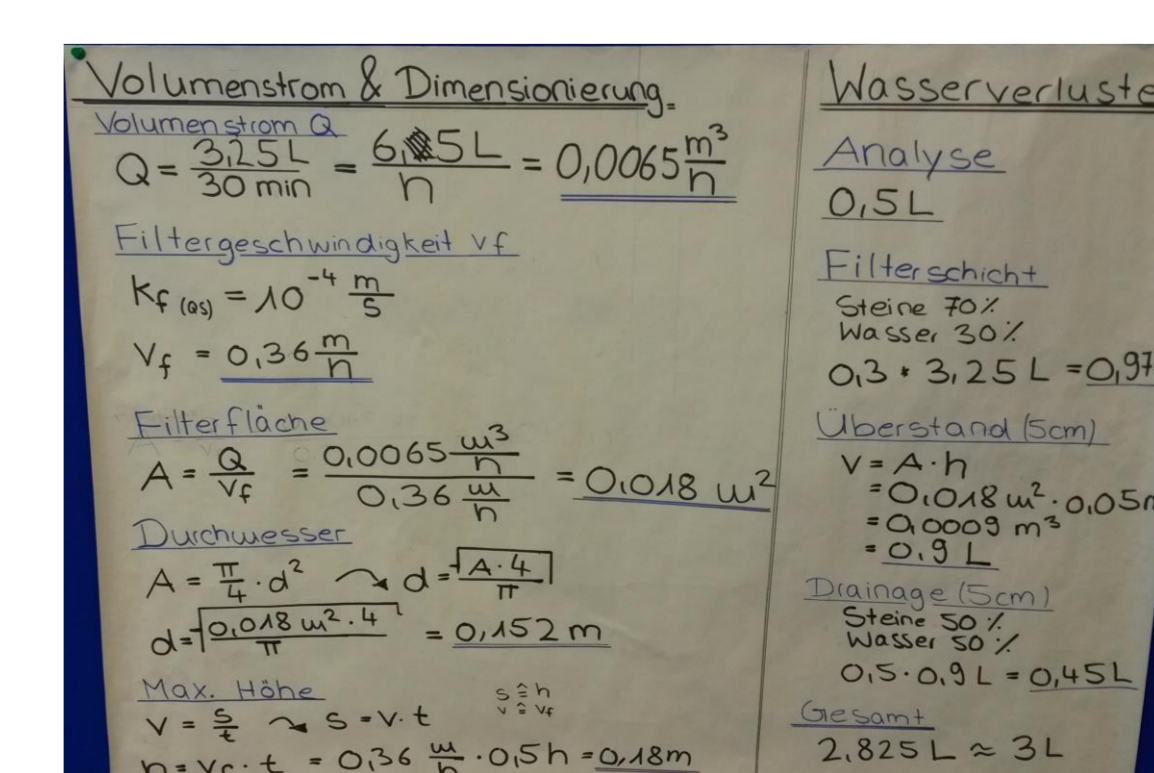 Volumenstrom & Dimensionierung
Volumenstrom Q
Q = 3,25 L / 30 min = 6,5 L / h = 0,0065 m³/h
Filtergeschwindigkeit vf
Kf (QS) = 10⁻⁴ m/s
Vf = 0,36 m/h
Filterfläche
A = Q/Vf = 0,0065 m³/h / 0,36 m/h = 0,018 m²
Durchmesser
A = π/4 · d² ↷ d = √(A · 4 / π)
d = √(0,018 m² · 4 / π) = 0,152 m
Max. Höhe
s ≙ h
v ≙ vf
V = s/t ↷ s = v · t
h = Vf · t = 0,36 m/h · 0,5 h = 0,18 m
Wasserverluste
Analyse
0,5 L
Filterschicht
Steine 70 %
Wasser 30 %
0,3 * 3,25 L = 0,97
Überstand (5cm)
V = A · h
= 0,018 m² · 0,05
= 0,0009 m³
= 0,9 L
Drainage (5cm)
Steine 50 %
Wasser 50 %
0,5 · 0,9 L = 0,45 L
Gesamt
2,825 L ≈ 3 L